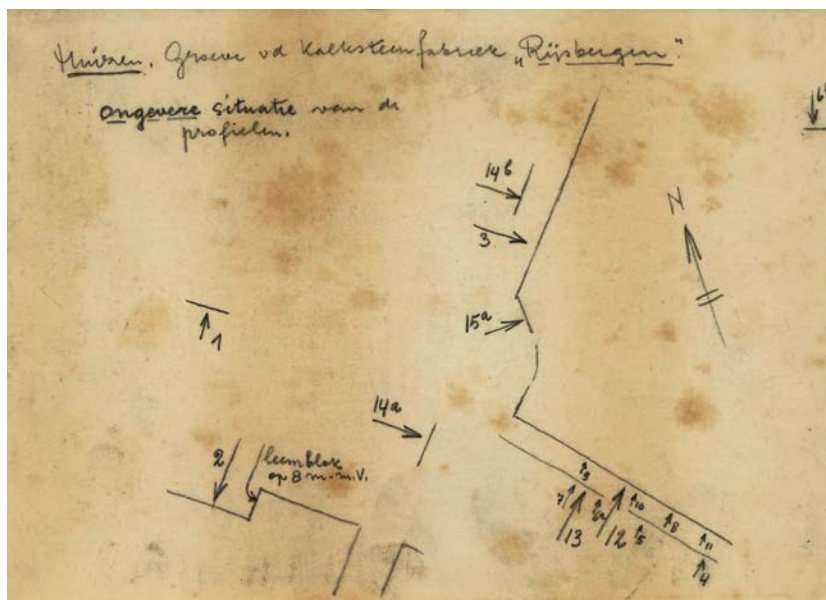 Huizen. Groeve vd Kalksteenfabriek „Rijsbergen".
ongevere situatie van de
profielen.
14b
3.
N
15a
1
14a
2
leemblok
op 8 m-m.V.
9
7
6a
10
8
11
13
12
5
4